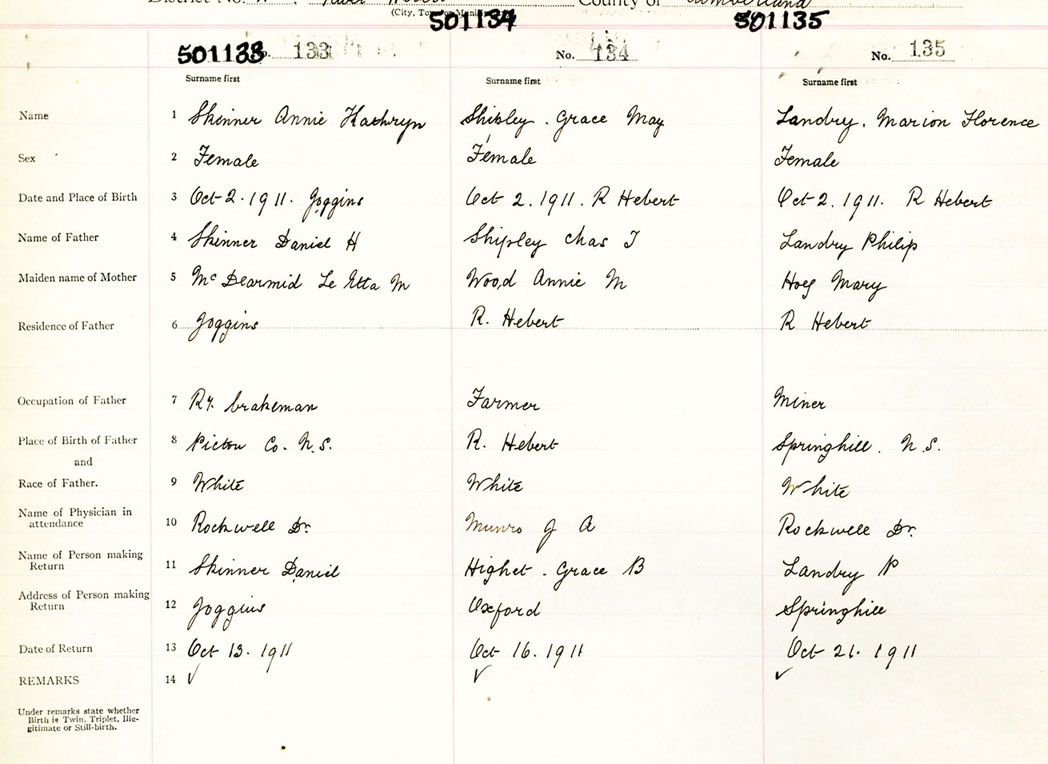 District No. County of Cumberland
(City, Town or Municipality)
501133 501134 501135
No. 133 No. 134 No. 135
Surname first Surname first Surname first
Name 1 Skinner Annie Kathryn Shipley. Grace May Landry, Marion Florence
Sex 2 Female Female Female
Date and Place of Birth 3 Oct 2. 1911. Joggins Oct 2. 1911. R Hebert Oct 2. 1911. R Hebert
Name of Father 4 Skinner Daniel H Shipley Chas T Landry Philip
Maiden name of Mother 5 Mc Dearmid Le Etta M Wood Annie M Hoeg Mary
Residence of Father 6 Joggins R. Hebert R Hebert
Occupation of Father 7 Ry. brakeman Farmer Miner
Place of Birth of Father 8 Pictou Co. N.S. R. Hebert Springhill. N.S.
and
Race of Father. 9 White White White
Name of Physician in
attendance 10 Rockwell Dr. Munro J A Rockwell Dr.
Name of Person making
Return 11 Skinner Daniel Highet. Grace B Landry P
Address of Person making
Return 12 Joggins Oxford Springhill
Date of Return 13 Oct 13. 1911 Oct 16. 1911 Oct 21. 1911
REMARKS 14 ✓ ✓ ✓
Under remarks state whether
Birth is Twin, Triplet, Ille-
gitimate or Still-birth.